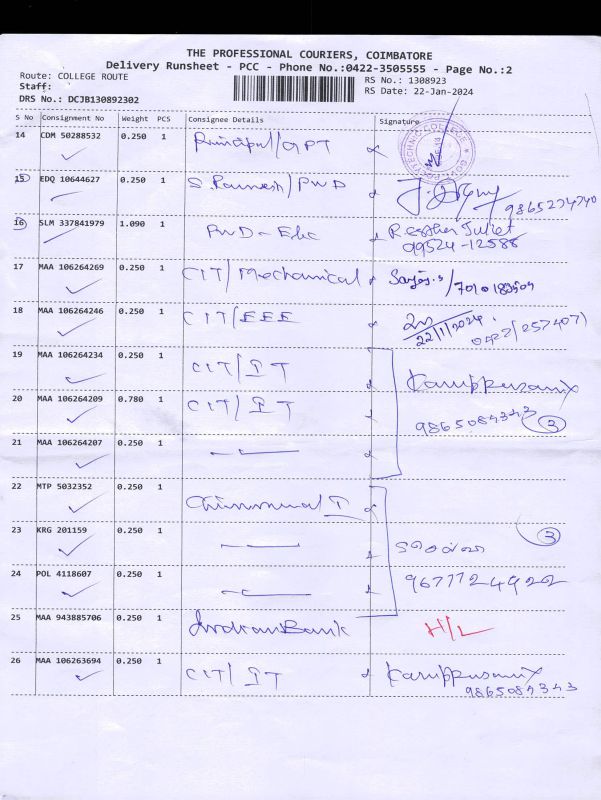 THE PROFESSIONAL COURIERS, COIMBATORE
Delivery Runsheet - PCC - Phone No.:0422-3505555 - Page No.:2
Route: COLLEGE ROUTE RS No.: 1308923
Staff: RS Date: 22-Jan-2024
DRS No.: DCJB130892302
S No Consignment No Weight PCS Consignee Details Signature
14 CDM 50288532 0.250 1 Principal/GPT
15 EDQ 10644627 0.250 1 S. Ramesh/PWD
9865274740
16 SLM 337841979 1.090 1 PWD-Elec R Esther Juliet
09524-12588
17 MAA 106264269 0.250 1 CIT/Mechanical
18 MAA 106264246 0.250 1 CIT/EEE
22/1/2024 0422(257407)
19 MAA 106264234 0.250 1 CIT/IT Karuppusamy
20 MAA 106264209 0.780 1 CIT/IT 9865084343 3
21 MAA 106264207 0.250 1
22 MTP 5032352 0.250 1
23 KRG 201159 0.250 1 3
24 POL 4118607 0.250 1 9677724922
25 MAA 943885706 0.250 1 Indian Bank H/L
26 MAA 106263694 0.250 1 CIT/IT Karuppusamy
9865084343